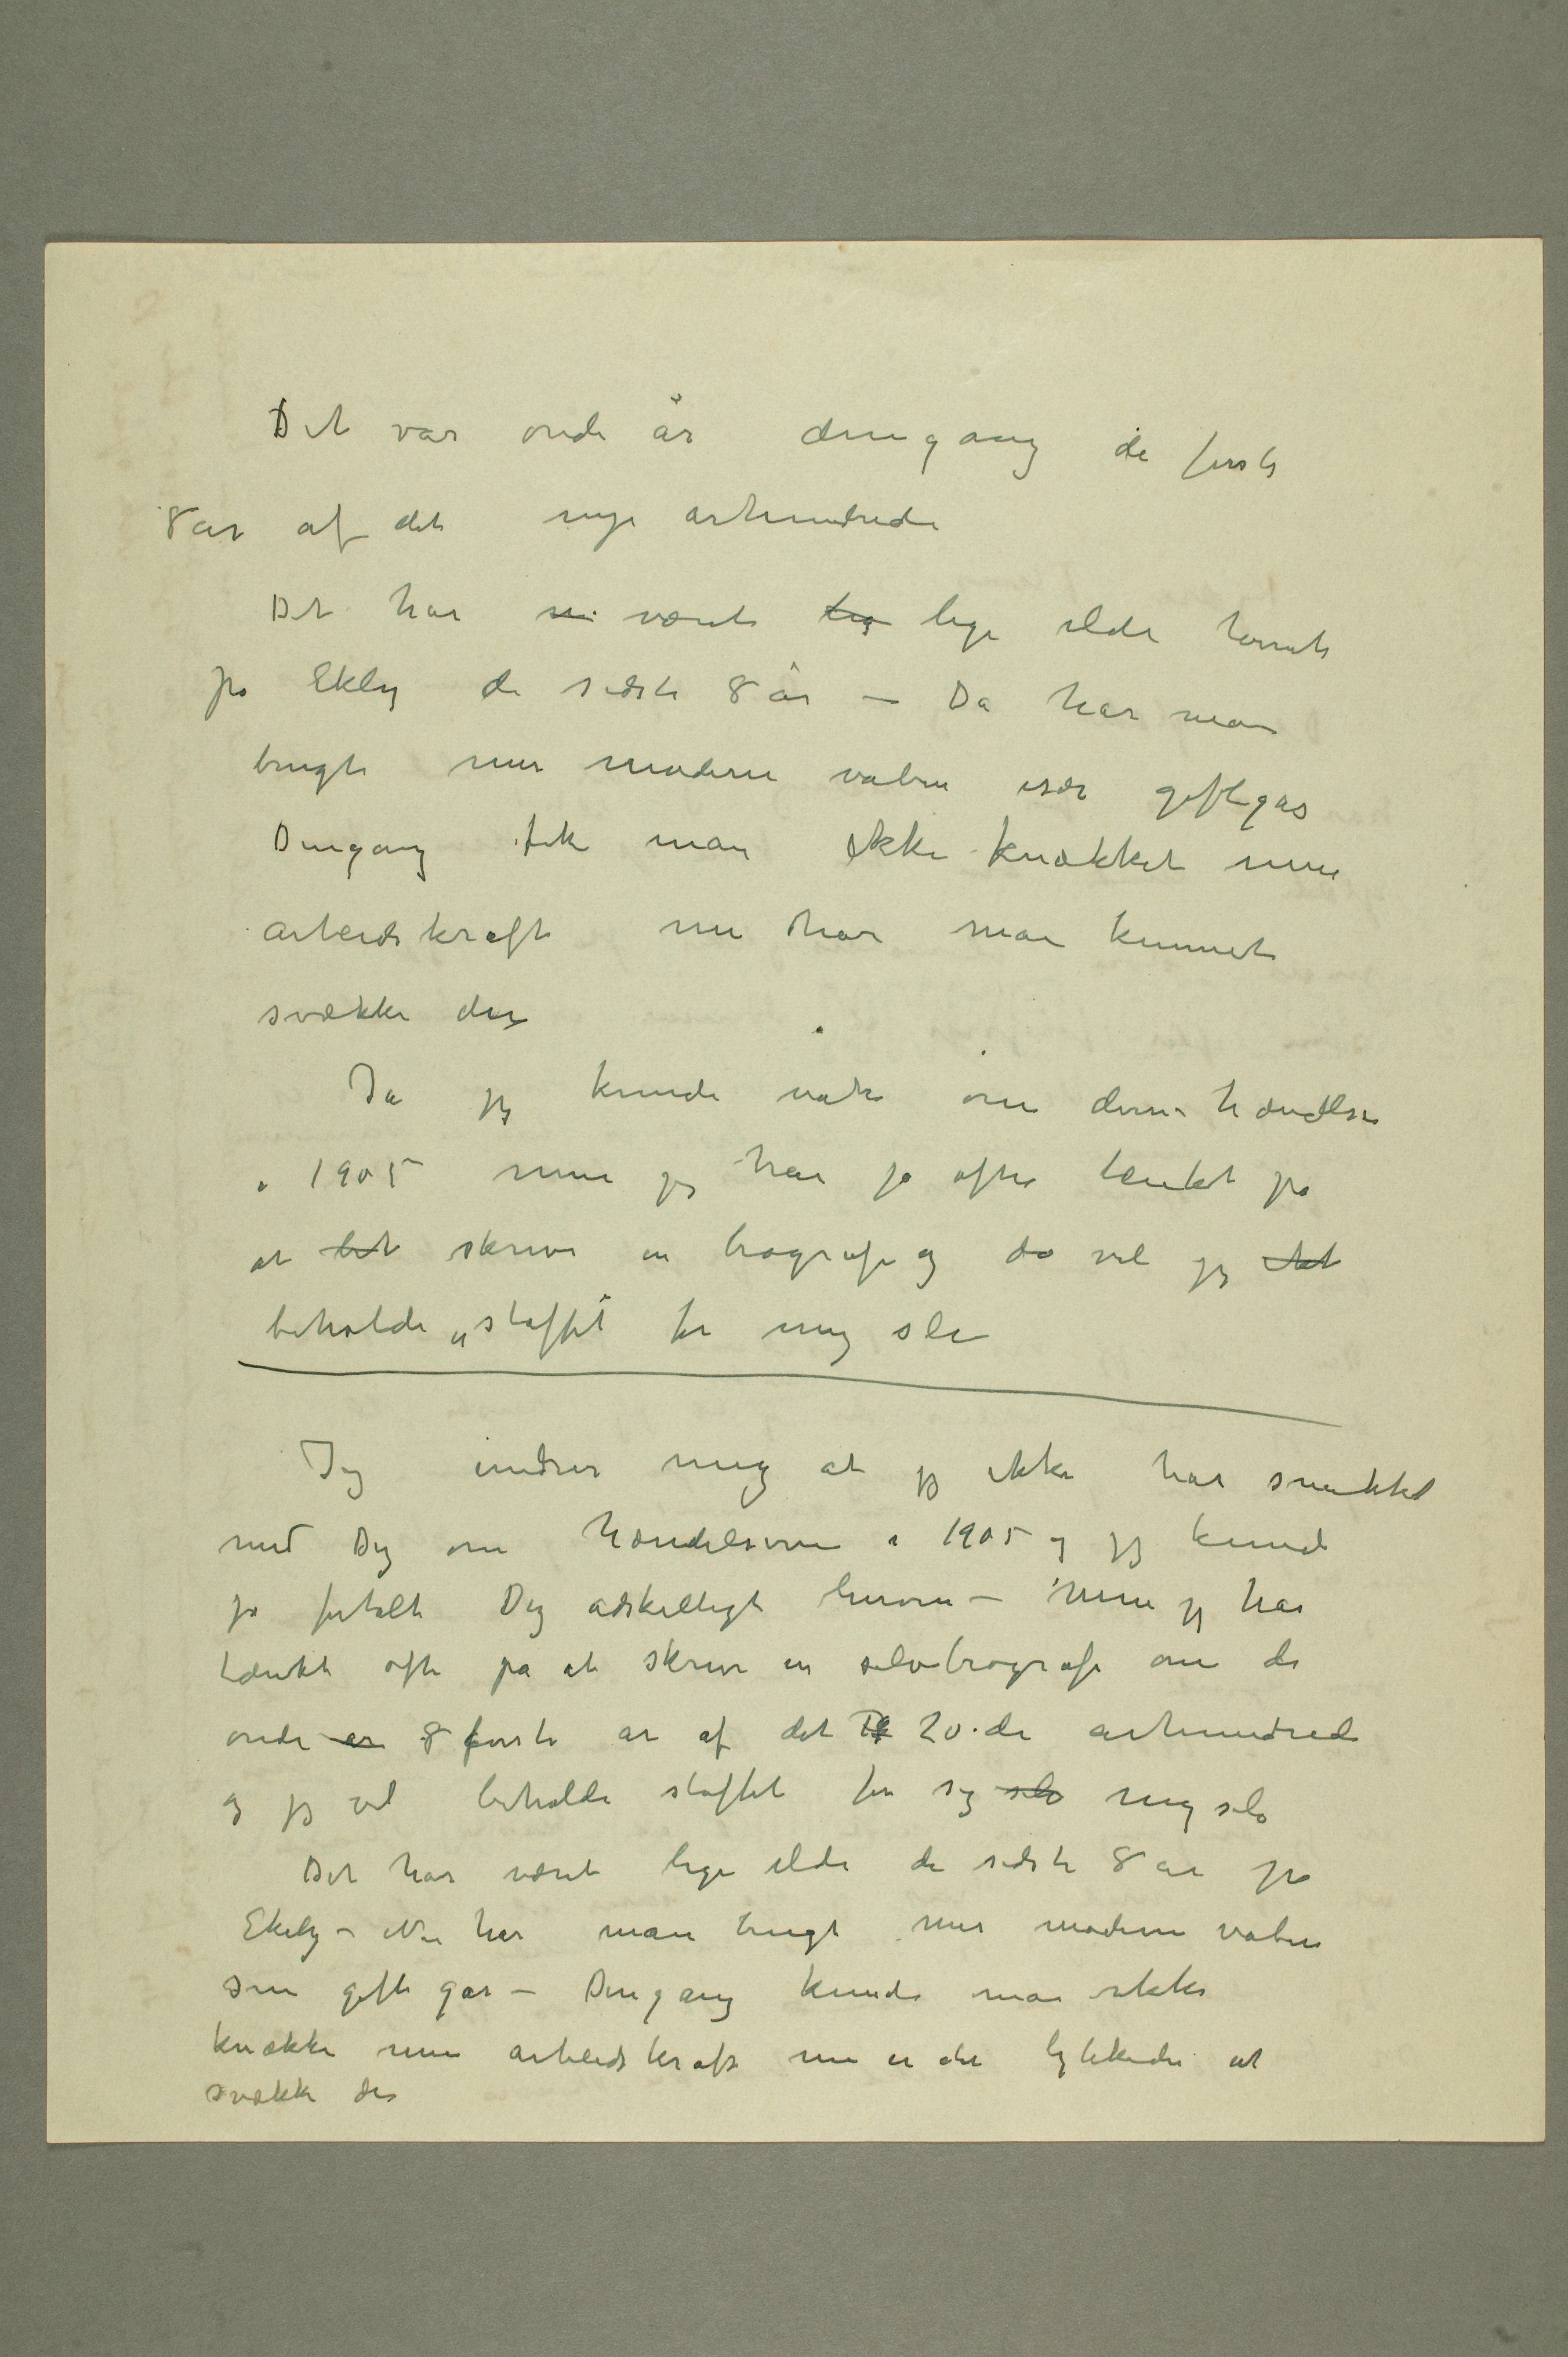 Det var onde år dengang de første
8 år af det nye århundrede
Det har været lige ilde
på Ekely de sidste 8 år – Da har man
brugt mer moderne våben især giftgas
Dengang fik man ikke knækket min
arbeidskraft nu har man kunnet
svække den
Ja jeg kunde om denne hændelse
i 1905 men jeg har jo ofte tænkt på
at skrive en biografi og da vil jeg
beholde „stoffet" for mig selv
Jeg undrer mig at jeg ikke har snakket
med Dig om hændelserne i 1905 og jeg kunde
jo fortalt Dig adskilligt herom – Men jeg har
tænkt ofte på at skrive en selvbiografi om de
onde 8 første år af det 20.de århundrede
og jeg vil beholde stoffet for sig mig selv
Det har været lige ilde de sidste 8 år på
Ekely – Nu har man brugt mer moderne våben
som giftgas – Dengang kunde man ikke
knække min arbeidskraft nu er det lykkedes at
svække den